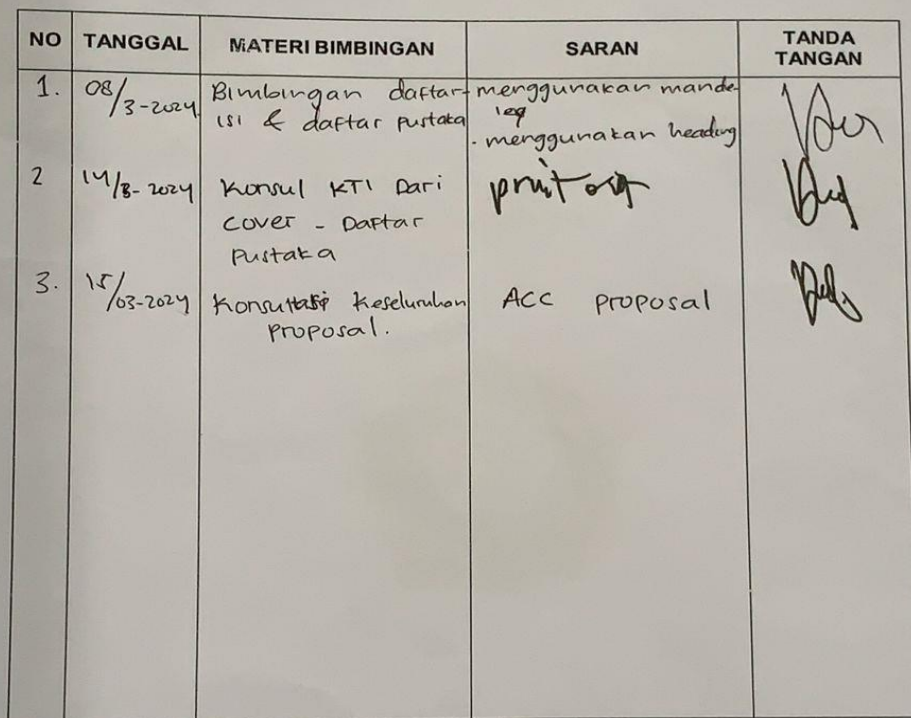 NO TANGGAL MATERI BIMBINGAN SARAN TANDA TANGAN
1. 08/3-2024 Bimbingan daftar isi & daftar pustaka
- menggunakan mendeley
- menggunakan heading
2 14/3-2024 Konsul KTI Dari
cover - Daftar
Pustaka
print out
3. 15/03-2024 Konsultasi Keseluruhan
proposal.
ACC proposal